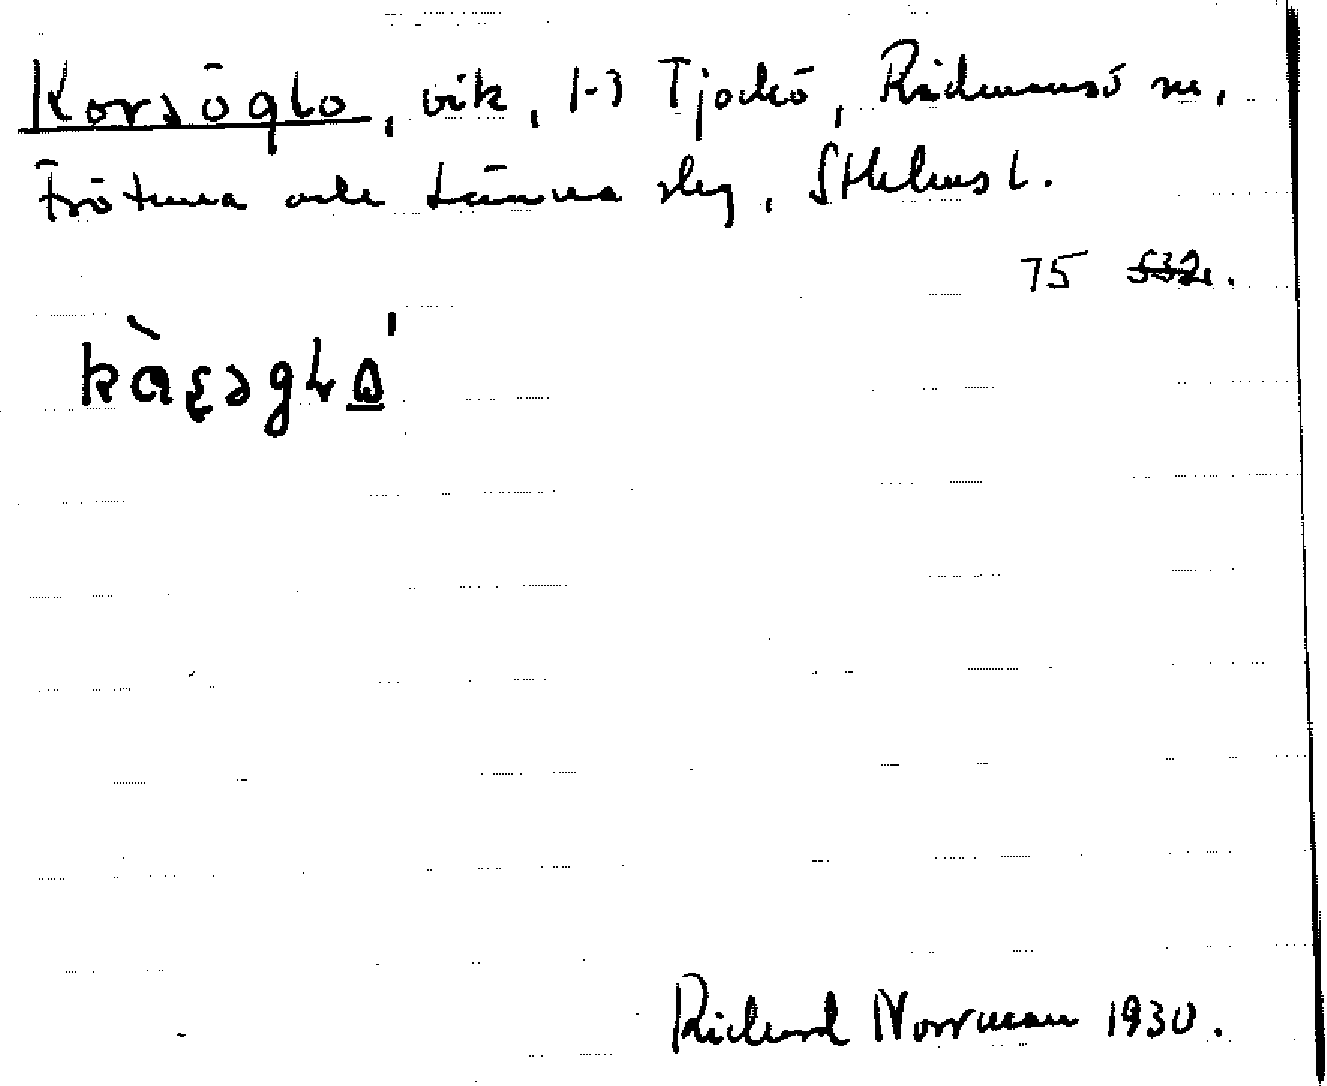 Korsöglo, vik, 1-3 Tjockö, Rådmansö sn,
Frötuna och Länna skg, Sthlms l.
75 532.
Richard Norrman 1930.